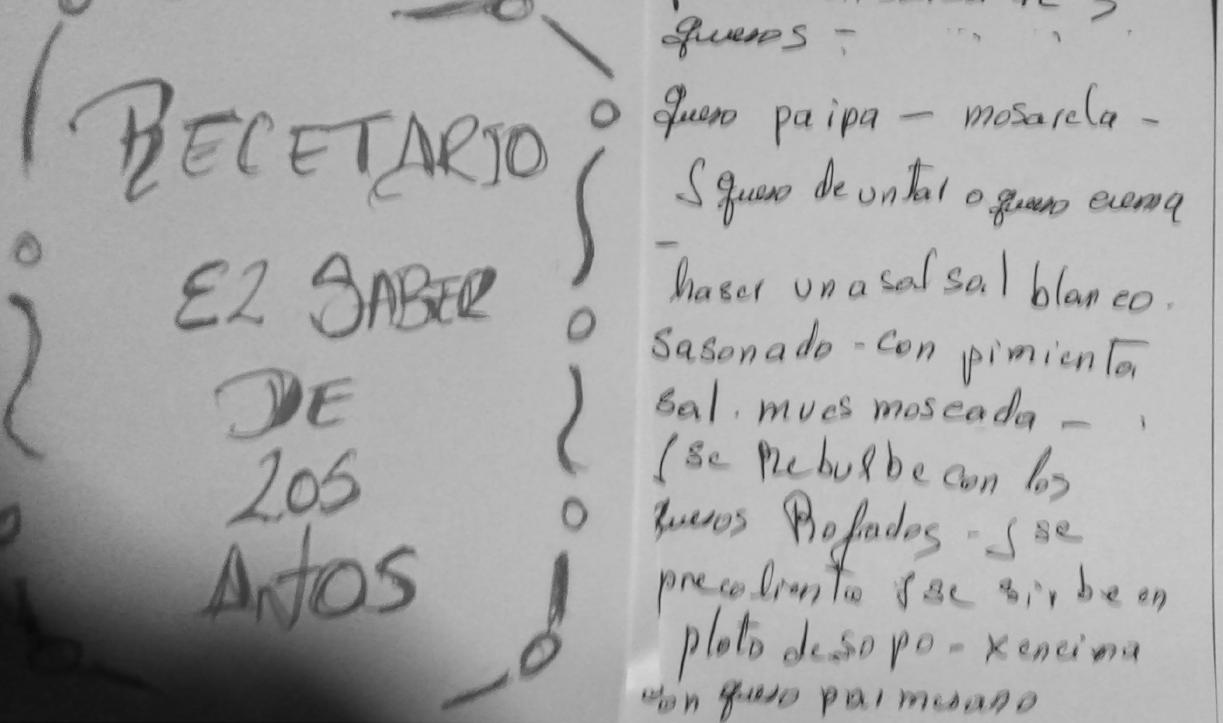 RECETARIO
EL SABER
DE
LOS
AÑOS
quesos -
queso paipa - mosarela -
y queso de untar o queso crema
-
haser una salsa al blanco.
sasonado - con pimienta
sal. nues moscada -
y se rebulbe con los
quesos Rayados - y se
precalienta y se sirbe en
plato de sopa - x encima
con queso parmesano